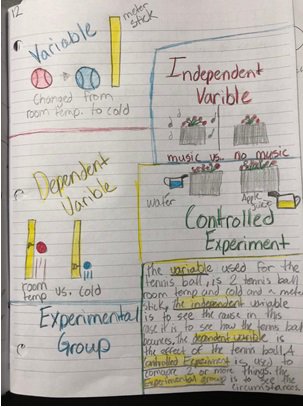 12
Variable
meter
stick
Changed from
room temp. to cold
Independent
Varible
music vs. no music
Dependent
Varible
water
Apple
Juice
Controlled
Experiment
room
temp vs. cold
Experimental
Group
The variable used for the
tennis ball, is 2 tennis ball
room temp and cold and a meter
stick, the independent variable
is to see the cause in this
case it is to see how the tennis ball
bounces. The dependent variable is
the effect of the tennis ball, A
controlled Experiment is used to
compare 2 or more things, the
experimental group is to see the
circumstances.